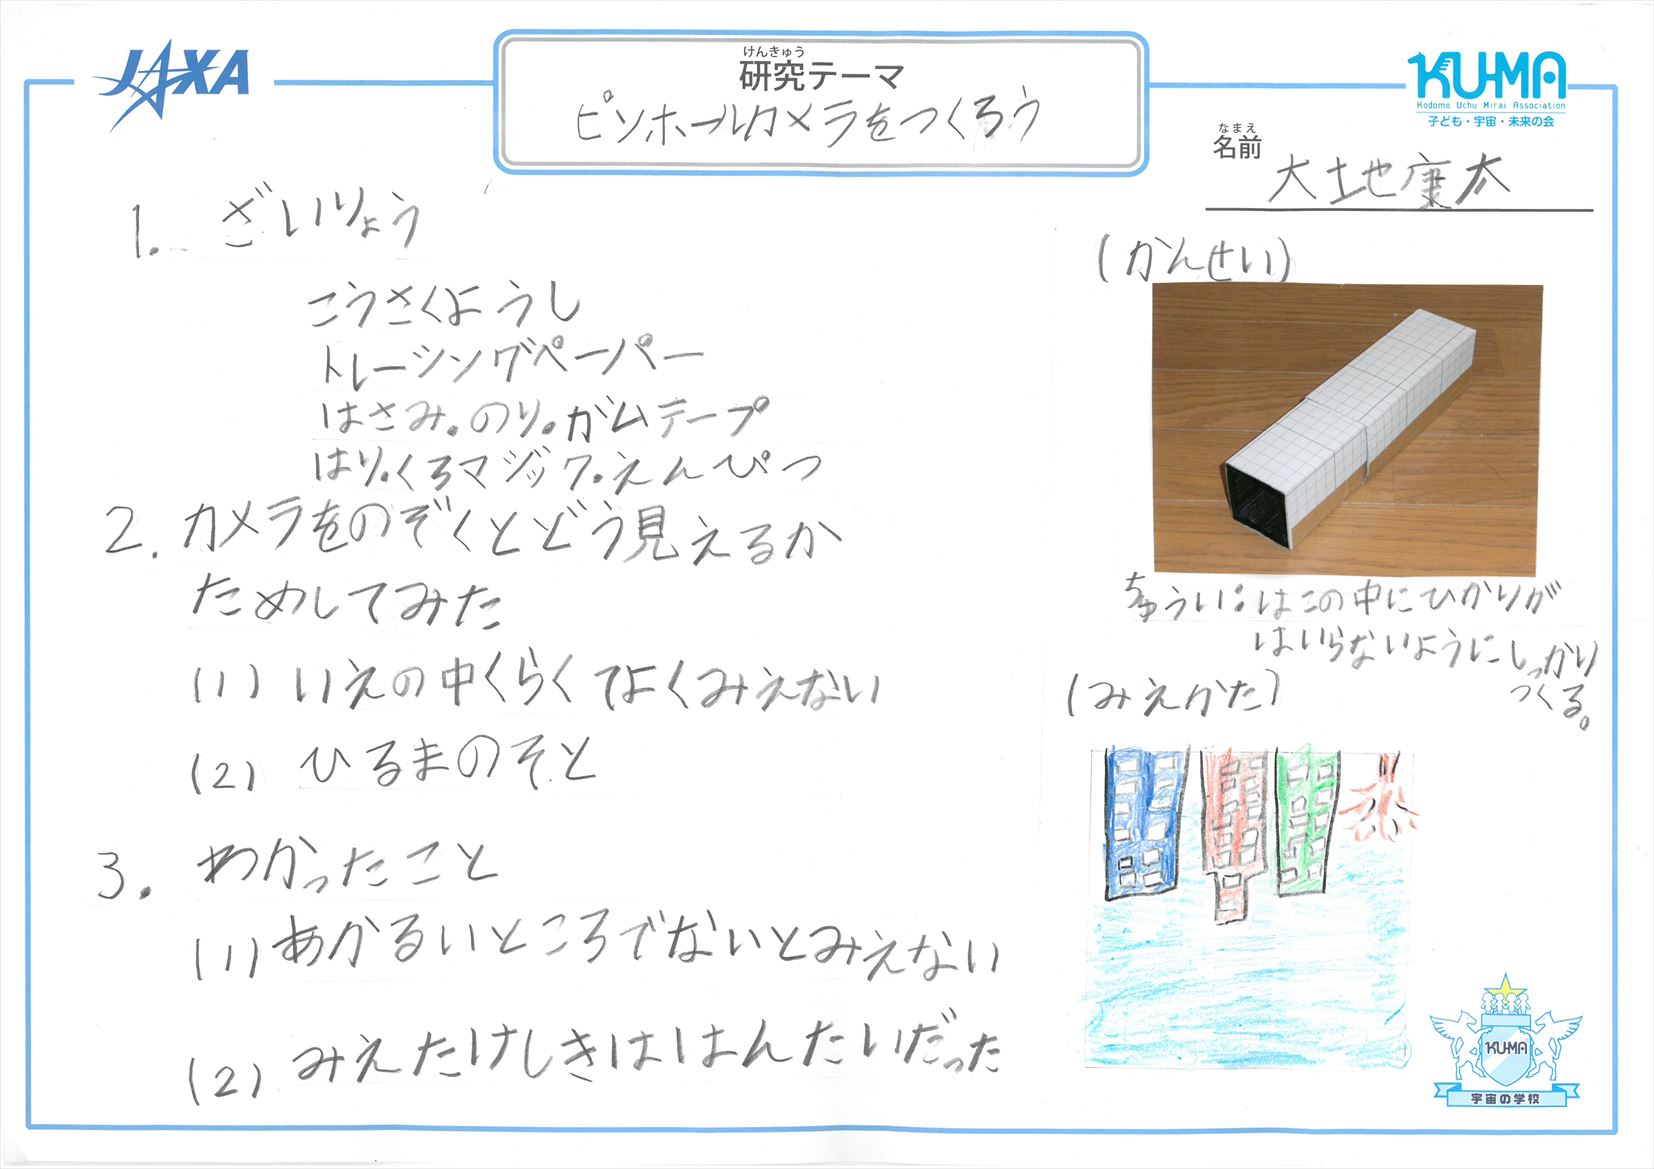 JAXA
けんきゅう
研究テーマ
ピンホールカメラをつくろう
KU-MA
Kodomo Uchu Mirai Association
子ども・宇宙・未来の会
なまえ
名前
大地康太
1. ざいりょう
こうさくようし
トレーシングペーパー
はさみ。のり。ガムテープ
はり。くろマジック。えんぴつ
2. カメラをのぞくとどう見えるか
ためしてみた
(1) いえの中くらくてよくみえない
(2) ひるまのそと
3. わかったこと
(1) あかるいところでないとみえない
(2) みえたけしきははんたいだった
(かんせい)
ちゅうい:はこの中にひかりが
はいらないようにしっかり
つくる。
(みえかた)
KU-MA
宇宙の学校